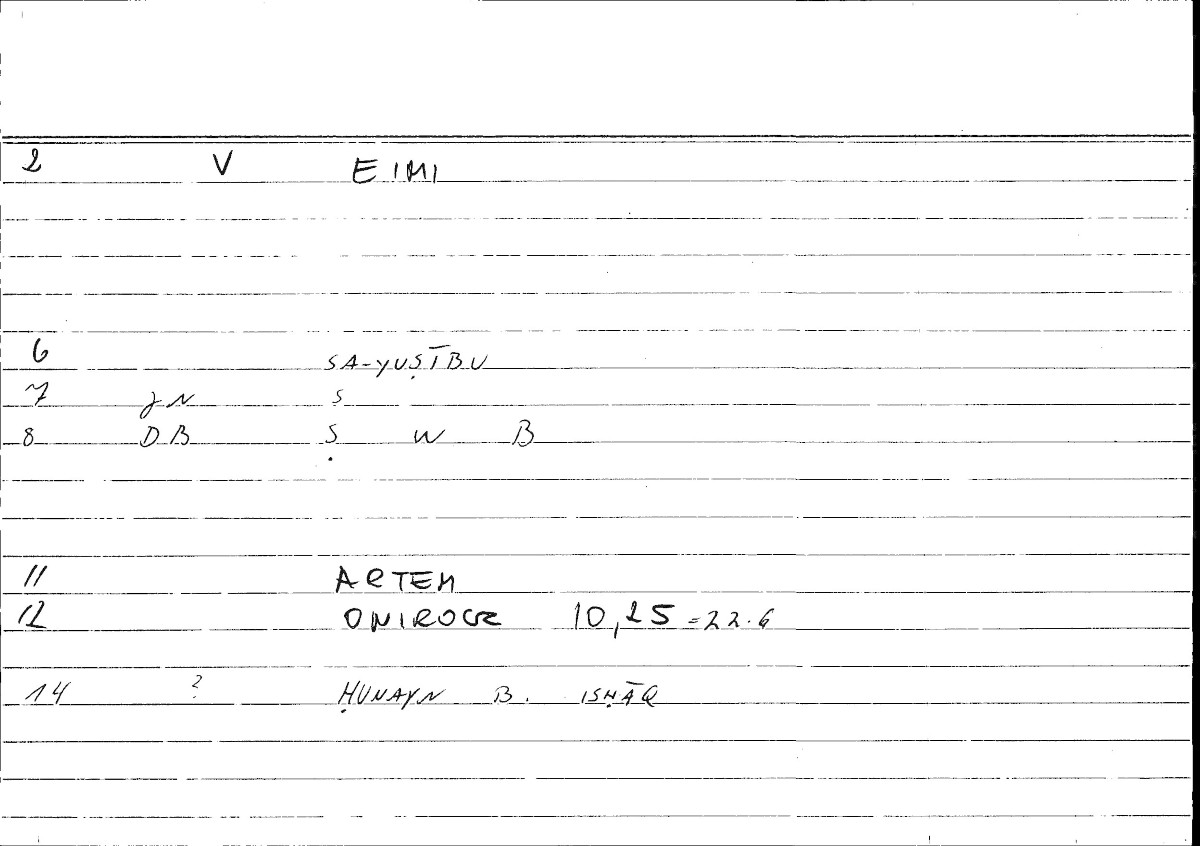 2 V EIMI
6 SA-YUṢĪBU
7 JN S
8 DB Ṣ W B
11 ARTEM
12 ONIROCR 10,25 = 22.6
14 ? ḤUNAYN B. ISḤĀQ